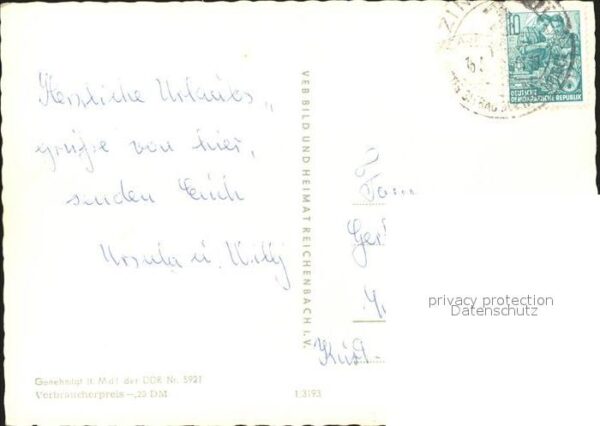 Herzliche Urlaubs„
grüße von hier,
senden Euch
Ursula u. Willy
VEB BILD UND HEIMAT REICHENBACH I. V.
10
DEUTSCHE
DEMOKRATISCHE REPUBLIK
Fam
privacy protection
Datenschutz
Genehmigt lt. MdI der DDR Nr. 5921
Verbraucherpreis -,20 DM
1 3193